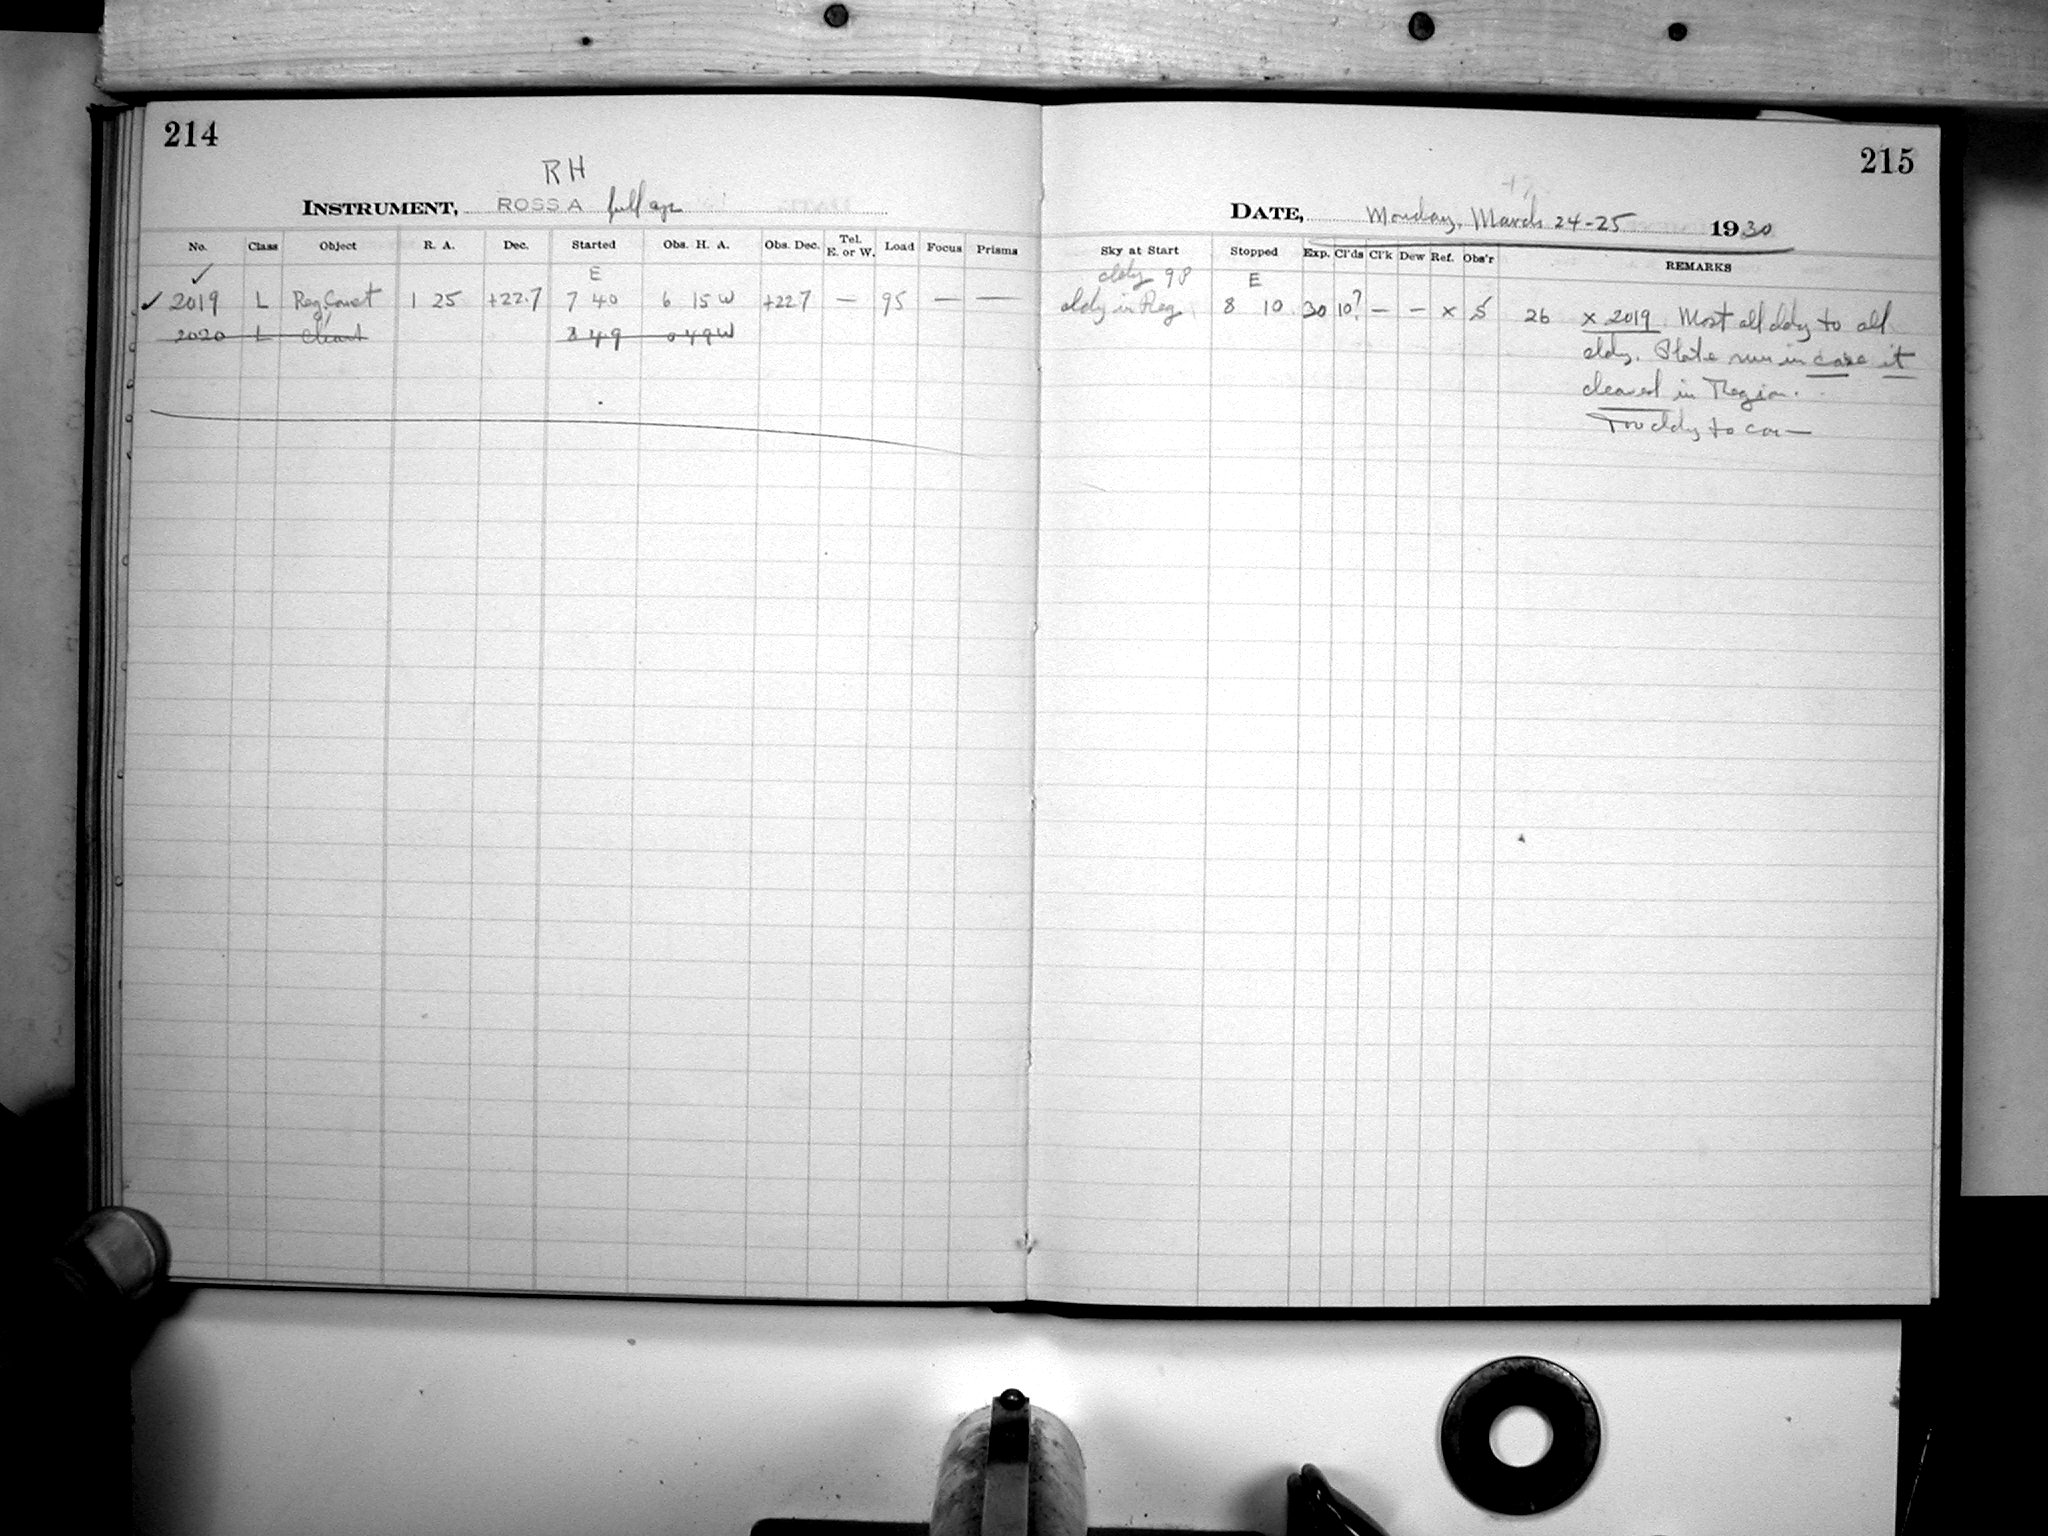 214
RH
INSTRUMENT, ROSS A full ap
No. Class Object R. A. Dec. Started Obs. H. A. Obs. Dec. Tel. E. or W. Load Focus Prisms
✓ E
✓ 2019 L Reg. Comet 1 25 +22.7 7 40 6 15 W +22.7 — 95 — —
2020 L Chart 8 49 0 49 W
215
DATE, Monday, March 24-25 1930
Sky at Start Stopped Exp. Cl'ds Cl'k Dew Ref. Obs'r REMARKS
cldy 9P E
cldy in Reg. 8 10 30 10? — — x S 26 x 2019. Most all cldy to all
cldy. Plate run in case it
cleared in Region.
Too cldy to con—